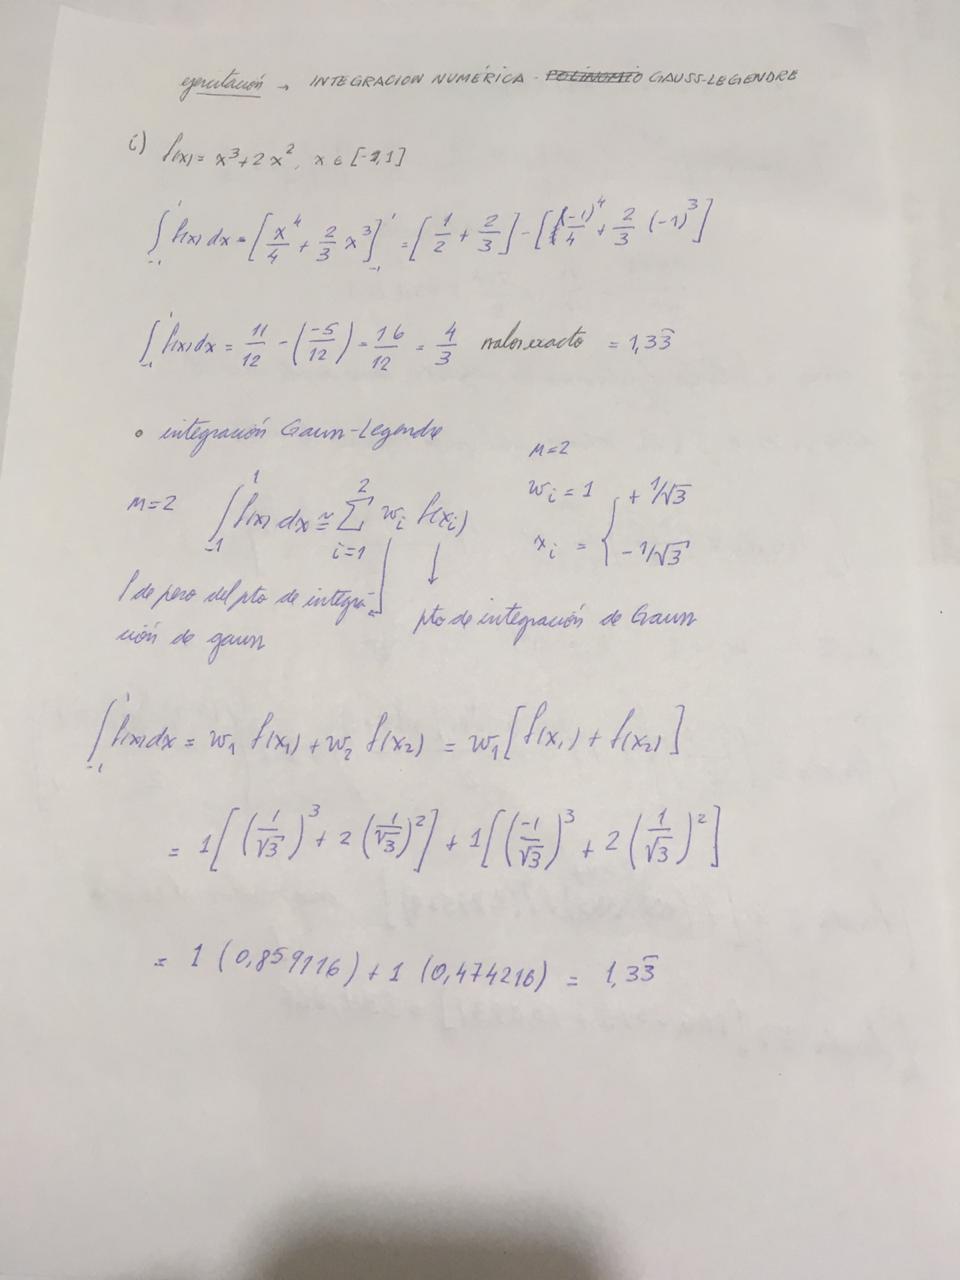 ejercitación → INTEGRACION NUMÉRICA - POLINOMIO GAUSS-LEGENDRE
i) f(x) = x³ + 2x², x ∈ [-1,1]
∫₋₁¹ f(x) dx = [x⁴/4 + 2/3 x³]₋₁¹ = [1/2 + 2/3] - [(-1)⁴/4 + 2/3 (-1)³]
∫₋₁¹ f(x) dx = 11/12 - (-5/12) = 16/12 = 4/3 valor exacto = 1,33̄
• integración Gauss-Legendre
n=2
n=2 ∫₋₁¹ f(x) dx ≅ ∑ᵢ₌₁² wᵢ f(xᵢ) wᵢ = 1
xᵢ = { + 1/√3
- 1/√3
de peso del pto de integra-
ción de gauss
pto de integración de Gauss
∫₋₁¹ f(x) dx = w₁ f(x₁) + w₂ f(x₂) = w₁ [f(x₁) + f(x₂)]
= 1[(1/√3)³ + 2(1/√3)²] + 1[(-1/√3)³ + 2(1/√3)²]
= 1 (0,859116) + 1 (0,474216) = 1,33̄